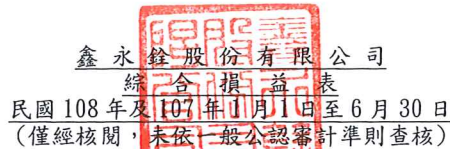 鑫永銓股份有限公司
綜合損益表
民國108年及107年1月1日至6月30日
(僅經核閱，未依一般公認審計準則查核)